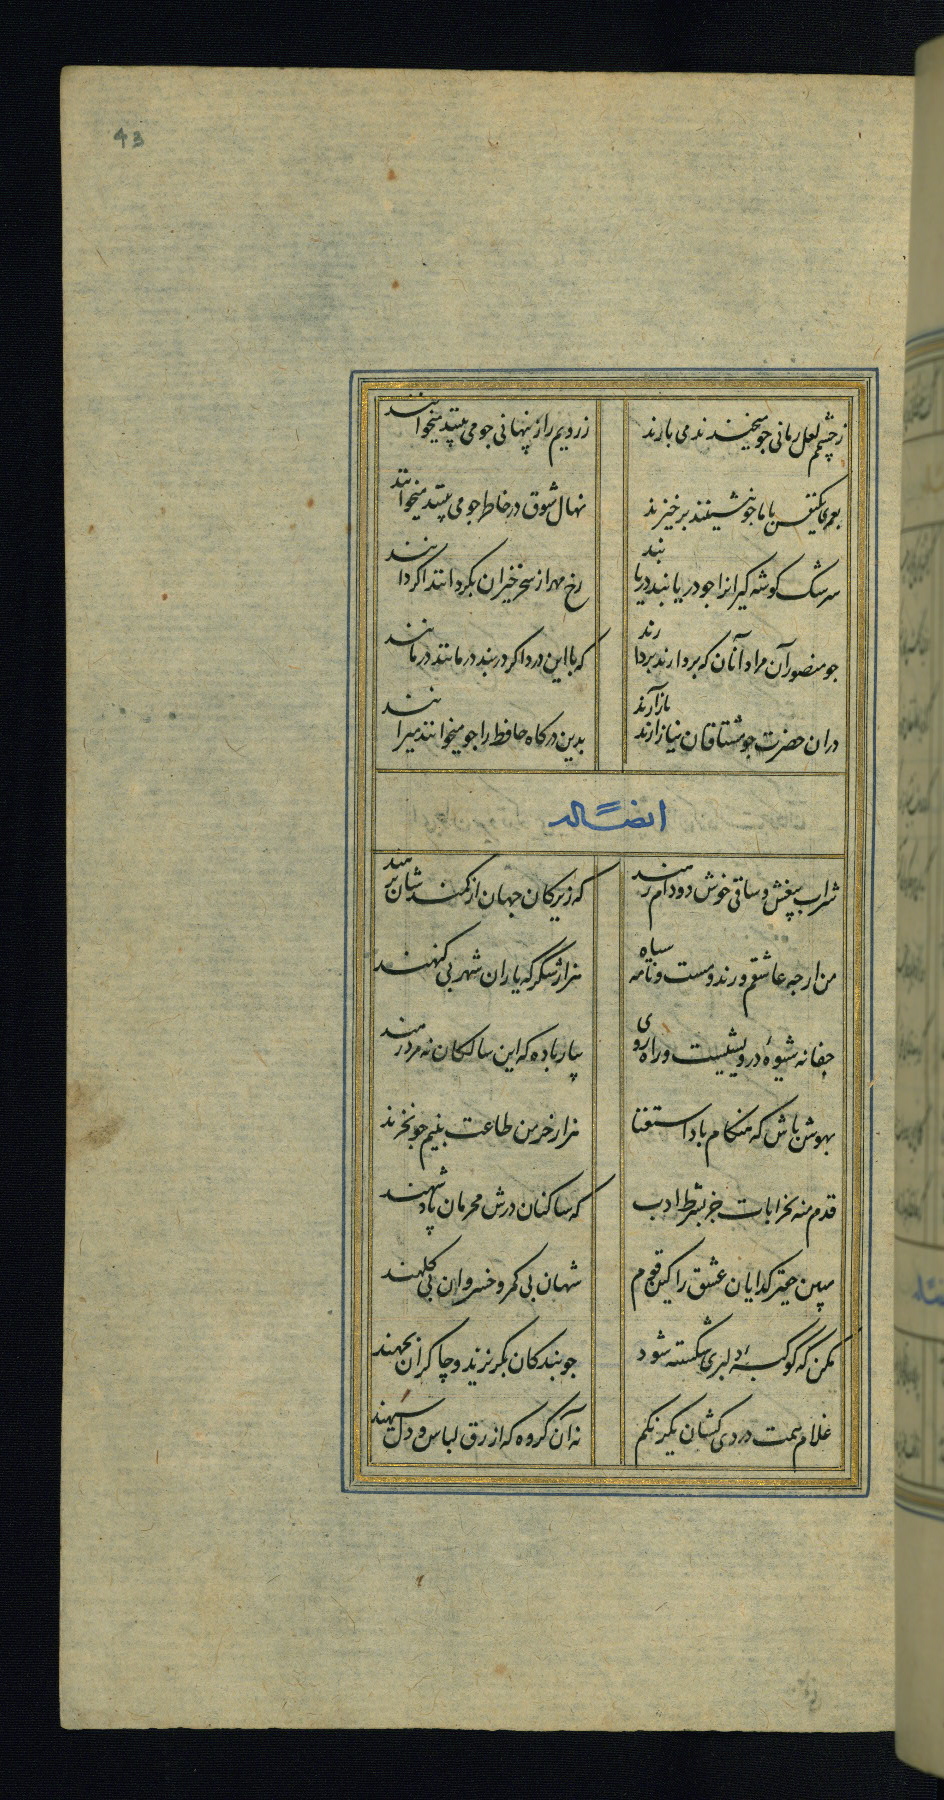 43
ز چشمم لعل رمانی جو میخندند می بارند
ز رویم راز پنهانی جو می بینند میخوانند
بعمری یکنفس با ما جو بنشینند برخیزند
نهال شوق در خاطر جو می بینند میخوانند
سرشک کوشه کیرانرا جو دریابند دریابند
رخ مهر از سحرخیزان بکردانند اکر دانند
جو منصور آن مراد آنان که بردارند بردارند
که با این درد اکر دربند درمانند درمانند
دران حضرت جو مشتاقان نیاز ارند باز آرند
بدین درکاه حافظ را جو میخوانند میرانند
ایضاً له
شراب بیغش و ساقی خوش دو دام رهند
که زیرکان جهان از کمندشان نرهند
من ار جه عاشقم و رند و مست و نامه سیاه
هزار شکر که یاران شهر بی کنهند
جفا نه شیوهٔ درویشیست و راه روی
بیار باده که این سالکان نه مرد رهند
بهوش باش که هنکام باد استغنا
هزار خرمن طاعت بنیم جو نخرند
قدم منه بخرابات جز بشرط ادب
که ساکنان درش محرمان پادشهند
مبین حقیر کدایان عشق را کین قوم
شهان بی کمر و خسروان بی کلهند
مکن که کوکبه دلبری شکسته شود
جو بندکان بکریزند و جاکران بجهند
غلام همت دردی کشان یکرنکم
نه آن کروه که ازرق لباس و دل سیهند